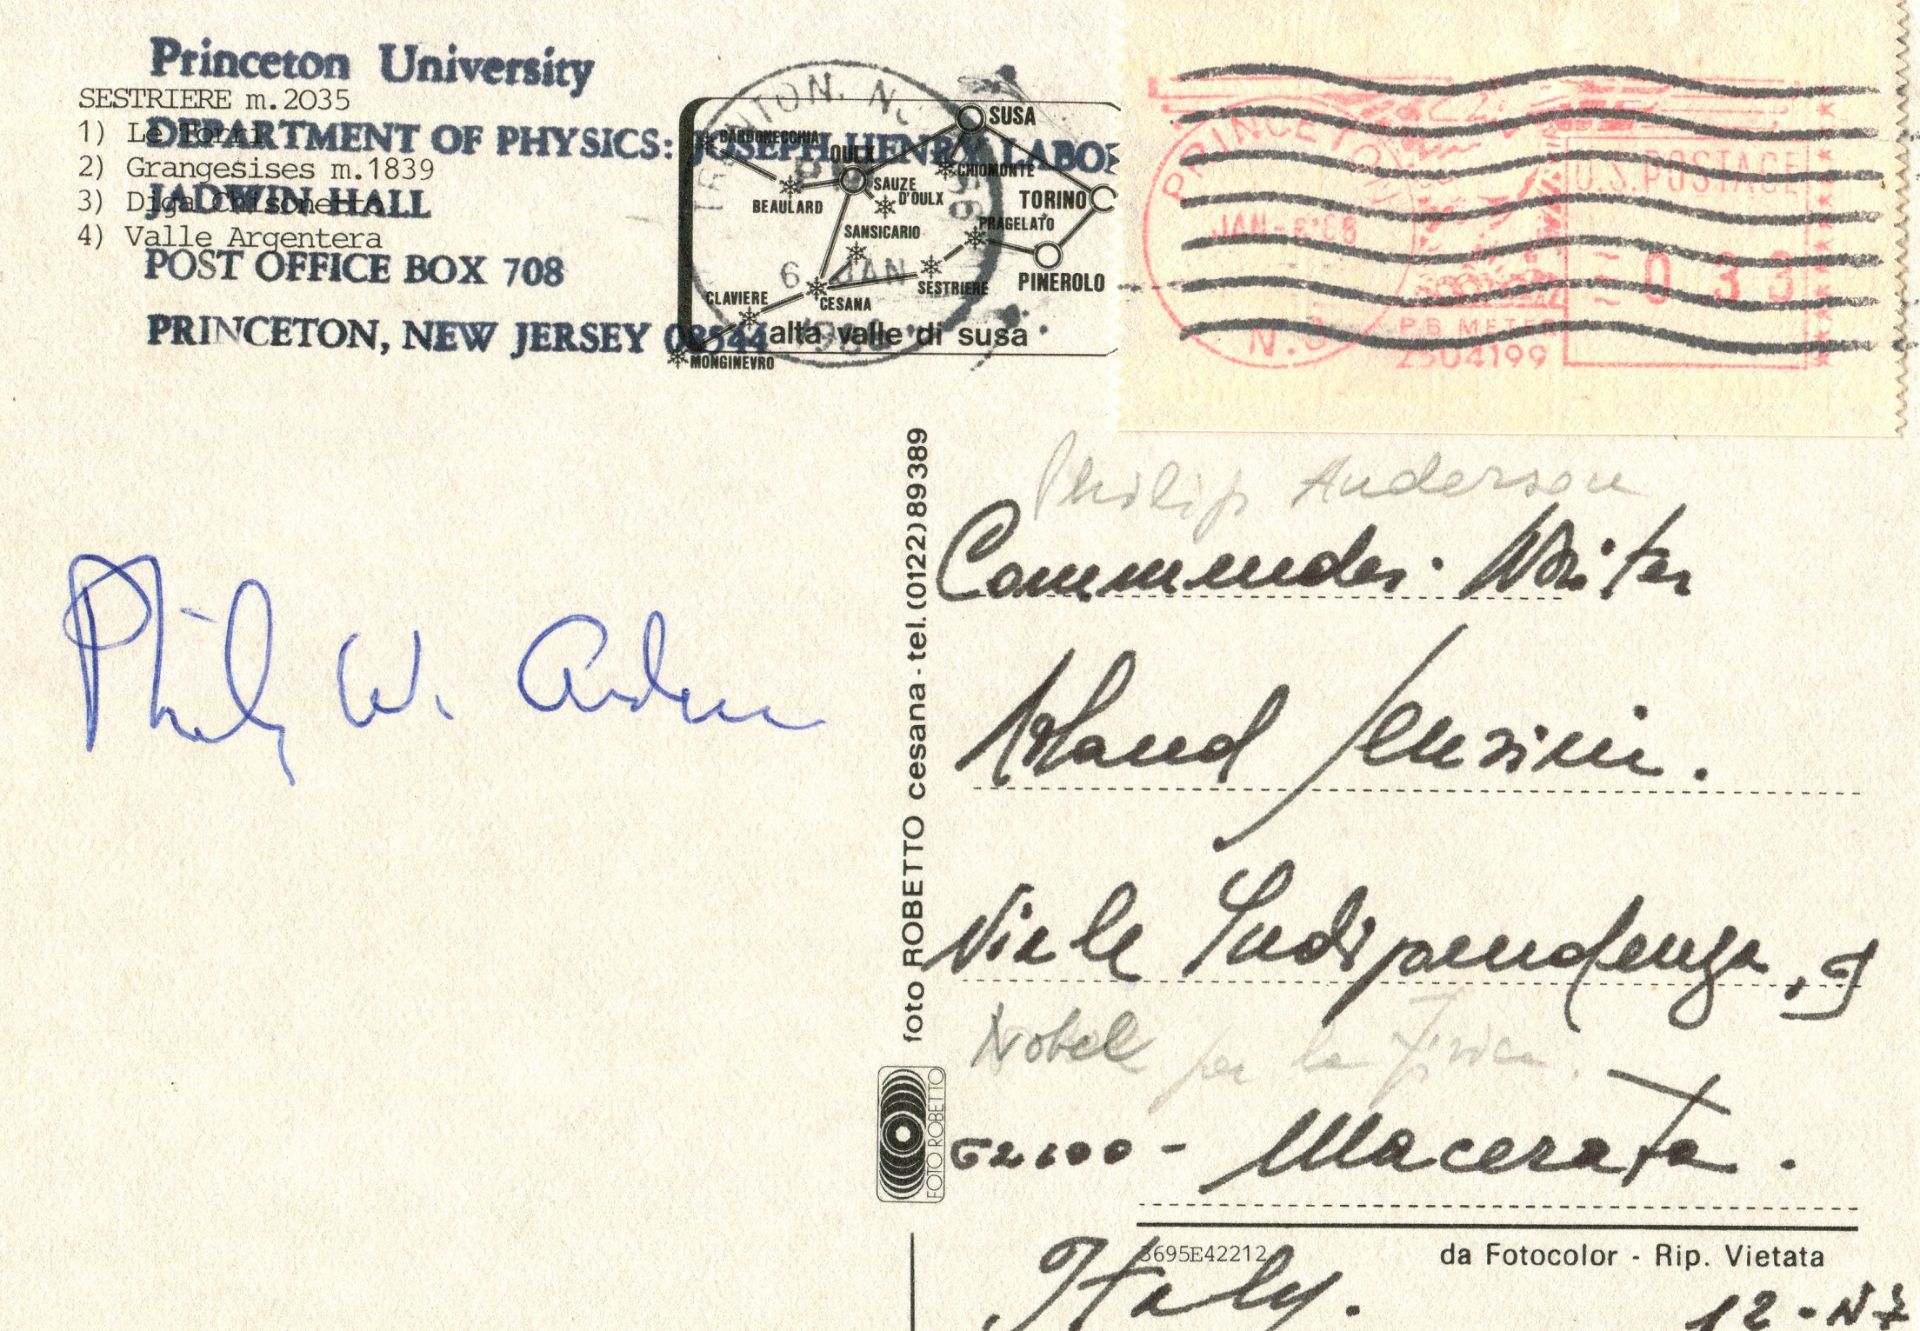 Princeton University
SESTRIERE m.2035
1) Le Torri
DEPARTMENT OF PHYSICS: JOSEPH HENRY LABO
2) Grangesises m.1839
3) Diga Chisonetto
JADWIN HALL
4) Valle Argentera
POST OFFICE BOX 708
PRINCETON, NEW JERSEY 08544
TRENTON, N.
PM
6 JAN
SUSA
BARDONECCHIA
OULX
CHIOMONTE
SAUZE D'OULX
BEAULARD
TORINO
PRAGELATO
SANSICARIO
PINEROLO
SESTRIERE
CLAVIERE
CESANA
MONGINEVRO
alta valle di susa
PRINCETON
N.J.
U.S.POSTAGE
033
P.B. METER
2504199
Philip W. Anderson
foto ROBETTO cesana - tel. (0122) 89389
FOTO ROBETTO
Philip Anderson
Commander. Writer
Viale Indipendenza,
Nobel per la Fisica.
62100 - Macerata.
3695E42212
da Fotocolor - Rip. Vietata
Italy.